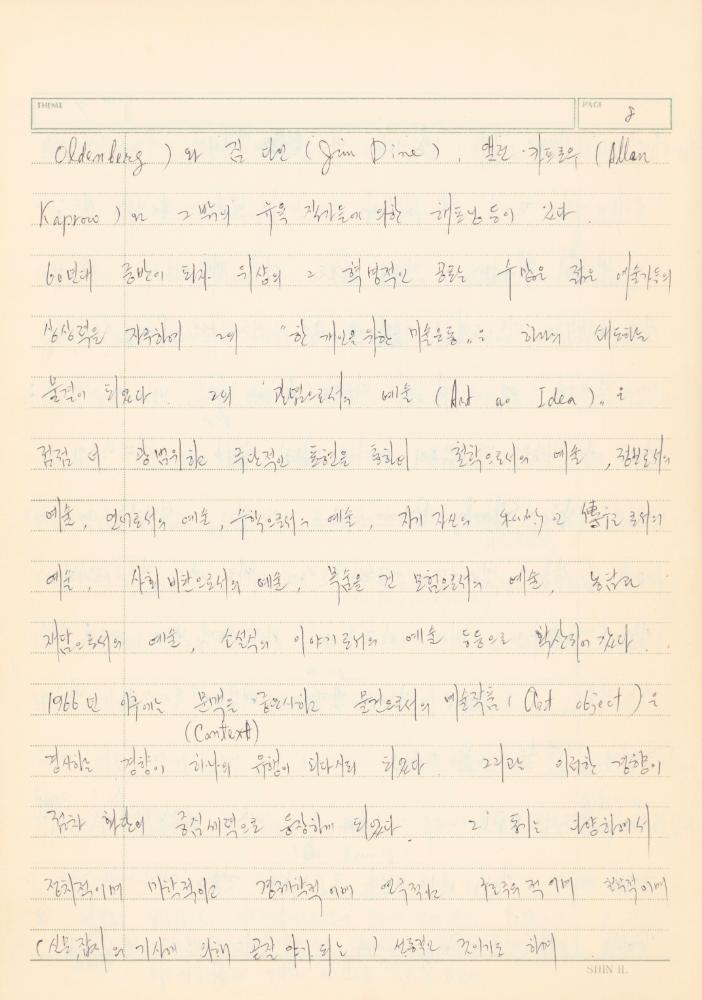 THEME
PAGE 8
Oldenberg ) 와 짐 다인 (Jim Dine) , 앨런 ·카프로우 (Allan
Kaprow ) 와 그 밖의 뉴욕 작가들에 의한 해프닝 등이 있다 .
60년대 중반이 되자 위상의 그 혁명적인 공포는 수많은 젊은 예술가들의
상상력을 자유하여 그의 "한 개인을 위한 미술운동„은 하나의 쇄도하는
물결이 되었다 . 그의 예술 (Art as Idea)„은
점점 더 광범위하고 극단적인 표현을 통하여 철학으로서의 예술 , 정보로서의
예술 , 언어로서의 예술 , 수학으로서의 예술 , 자기 자신의 로서의
예술 , 사회 비판으로서의 예술 , 목숨을 건 모험으로서의 예술 , 농담과
재담으로서의 예술 , 소설식의 이야기로서의 예술 등등으로 확산되어 갔다 .
1966년 이후에는 문맥을 중요시하고 물건으로서의 예술작품 ( Art object ) 은
(Context)
경시하는 경향이 하나의 유행이 되다시피 되었다 . 그리고는 이러한 경향이
점차 화단의 중심세력으로 등장하게 되었다 . 그 동기는 다양하여서
정치적이며 미학적이고 경제학적이며 연극적이고 적이며 철학적이며
(신문, 잡지의 기사에 의해 곧잘 야기되는 ) 선동적인 것이기도 하며
SHIN IL